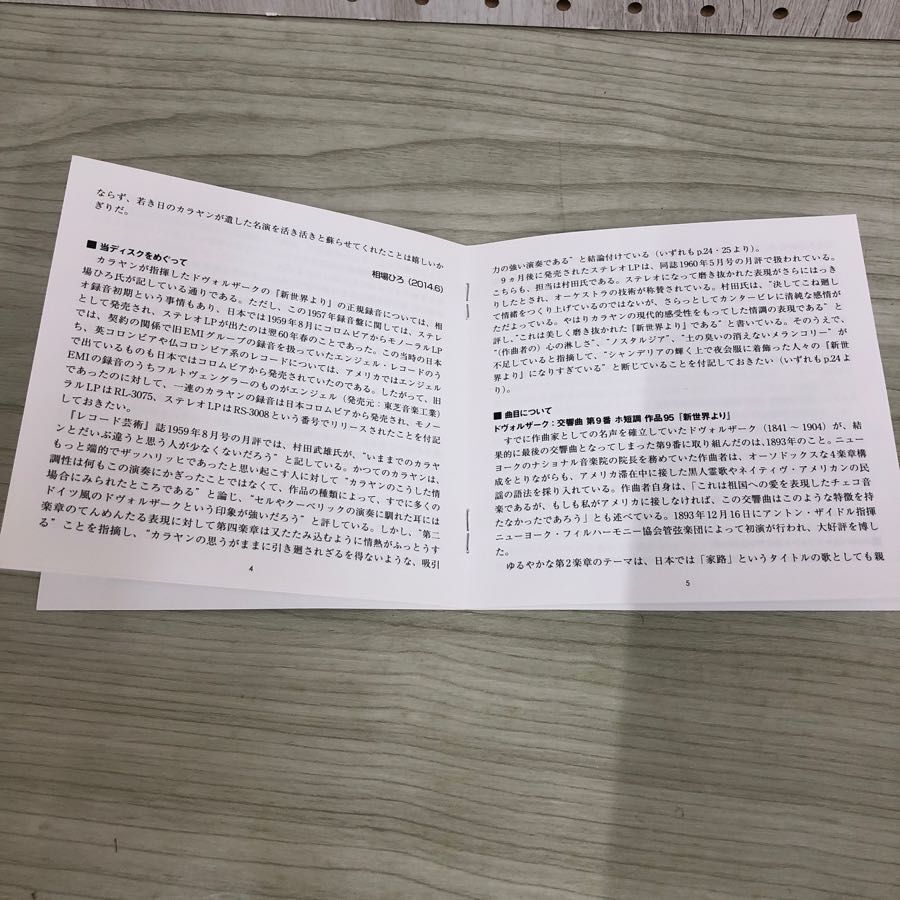 ならず、若き日のカラヤンが遺した名演を活き活きと蘇らせてくれたことは嬉しいか
ぎりだ。
相場ひろ (2014.6)
■ 当ディスクをめぐって
カラヤンが指揮したドヴォルザークの『新世界より』の正規録音については、相
場ひろ氏が記している通りである。ただし、この1957年録音盤に関しては、ステレ
オ録音初期という事情もあり、日本では1959年8月にコロムビアからモノーラルLP
として発売され、ステレオLPが出たのは翌60年春のことであった。この当時の日本
では、契約の関係で旧EMIグループの録音を扱っていたエンジェル・レコードのう
ち、英コロンビアや仏コロンビア系のレコードについては、アメリカではエンジェル
で出ているものも日本ではコロムビアから発売されていたのである。したがって、旧
EMIの録音のうちフルトヴェングラーのものがエンジェル（発売元：東芝音楽工業）
であったのに対して、一連のカラヤンの録音は日本コロムビアから発売され、モノー
ラルLPはRL-3075、ステレオLPはRS-3008という番号でリリースされたことを付記
しておきたい。
『レコード芸術』誌1959年8月号の月評では、村田武雄氏が、“いままでのカラヤ
ンとだいぶ違うと思う人が少なくないだろう” と記している。かつてのカラヤンは、
もっと端的でザッハリッヒであったと思い起こす人に向けて “カラヤンのこうした情
調性は何もこの演奏にかぎったことではなくて、作品の種類によって、すでに多くの
場合にみられたところである” と論じ、“セルやクーベリックの演奏に馴れた耳には
ドイツ風のドヴォルザークという印象が強いだろう” と評している。しかし、“第二
楽章のてんめんたる表現に対して第四楽章は又たたみ込むように情熱がふっとうす
る” ことを指摘し、“カラヤンの思うがままに引き廻されざるを得ないような、吸引
4
力の強い演奏である” と結論付けている（いずれもp.24・25より）。
９ヵ月後に発売されたステレオLPは、同誌1960年5月号の月評で扱われている。
こちらも、担当は村田氏である。ステレオになって磨き抜かれた表現がさらにはっき
りしたとされ、オーケストラの技術が称賛されている。村田氏は、“決してこね廻し
て情緒をつくり上げているのではないが、さらっとしてカンタービレに清純な感情が
ただよっている。やはりカラヤンの現代的感受性をもってした情調の表現である” と
評し、“これは美しく磨き抜かれた『新世界より』である” と書いている。そのうえで、
“（作曲者の）心の淋しさ”、“ノスタルジア”、“土の臭いの消えないメランコリー” が
不足していると指摘して、“シャンデリアの輝く上で夜会服に着飾った人々の『新世
界より』になりすぎている” と断じていることを付記しておきたい（いずれもp.24よ
り）。
■ 曲目について
ドヴォルザーク：交響曲 第９番 ホ短調 作品95『新世界より』
すでに作曲家としての名声を確立していたドヴォルザーク（1841～1904）が、結
果的に最後の交響曲となってしまった第9番に取り組んだのは、1893年のこと。ニュー
ヨークのナショナル音楽院の院長を務めていた作曲者は、オーソドックスな４楽章構
成をとりながらも、アメリカ滞在中に接した黒人霊歌やネイティヴ・アメリカンの民
謡の語法を採り入れている。作曲者自身は、「これは祖国への愛を表現したチェコ音
楽であるが、もしも私がアメリカに接しなければ、この交響曲はこのような特徴を持
たなかったであろう」とも述べている。1893年12月16日にアントン・ザイドル指揮
ニューヨーク・フィルハーモニー協会管弦楽団によって初演が行われ、大好評を博し
た。
ゆるやかな第２楽章のテーマは、日本では「家路」というタイトルの歌としても親
5